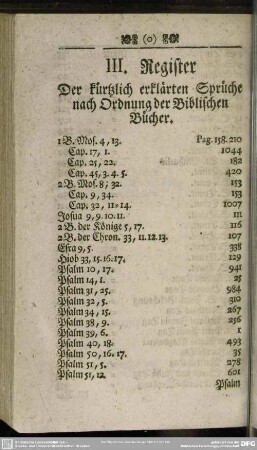 (0)
III. Register
Der kürtzlich erklärten Sprüche
nach Ordnung der Biblischen
Bücher.
1 B. Mos. 4, 13. Pag. 158. 210
Cap. 17, 1. 1044
Cap. 25, 22. 182
Cap. 45, 3. 4. 5. 420
2 B. Mos. 8; 32. 153
Cap. 9, 34. 153
Cap. 32, 11-14. 1007
Josua 9, 9. 10. 11. 111
2 B. der Könige 5, 17. 116
2 B. der Chron. 33, 11. 12. 13. 107
Esra 9, 5. 338
Hiob 33, 15. 16. 17. 129
Psalm 10, 17. 941
Psalm 14, 1. 25
Psalm 31, 25. 984
Psalm 32, 5. 310
Psalm 34, 15. 267
Psalm 38, 9. 256
Psalm 39, 6. 1
Psalm 40, 18. 493
Psalm 50, 16. 17. 35
Psalm 51, 5. 278
Psalm 51, 12. 601
Psalm
DFG